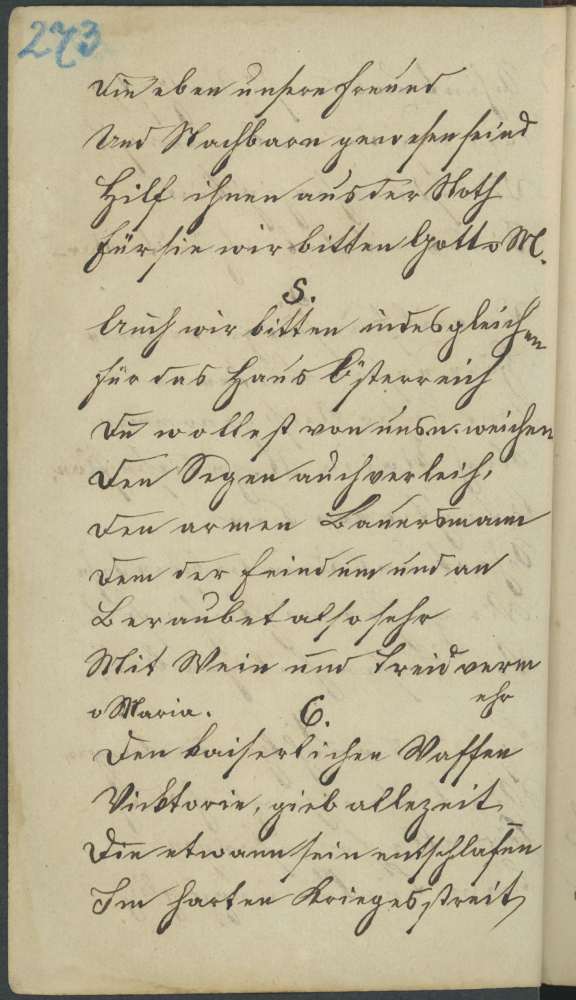 273
Die eben unsere Freund
Und Nachbarn gewesen seind
Hilf ihnen aus der Noth
Für sie wir bitten Gott o M.
5.
Auch wir bitten indesgleichen
für das Haus Österreich
Du wollest von uns n. weichen
Den Segen auch verleih,
Den armen Bauersmann
Dem der Feind um und an
Beraubet also sehr
Mit Wein und Treid verm
ehr
o Maria.
6.
Den kaiserlichen Waffen
Vicktorie, gieb allezeit
Die etwann sein entschlafen
Im harten Kriegesstreit